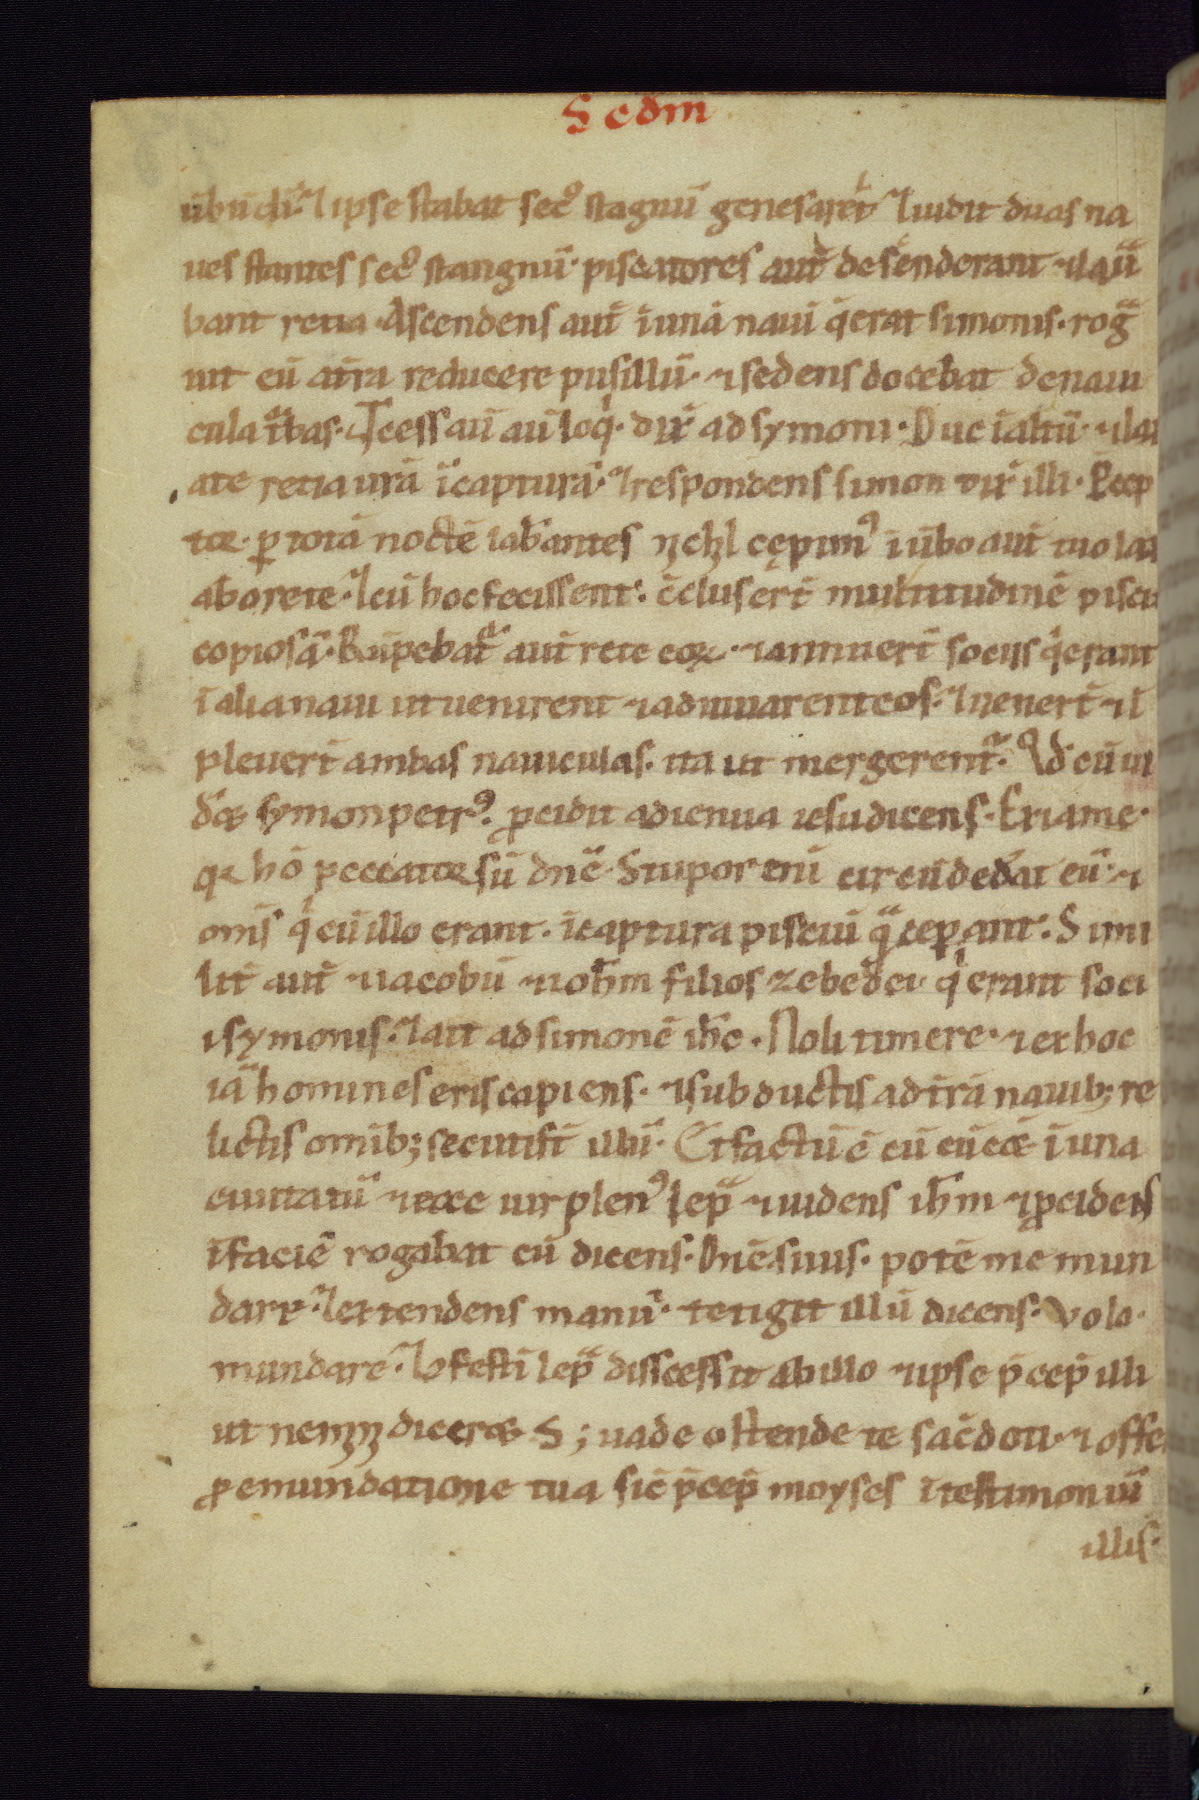 Scdm
ūbū dī. ⁊ ipse stabat secꝰ stagnū genesaret ⁊ uidit duas na
ues stantes secꝰ stangnū. piscatores aut̄ desenderant ⁊ laua
bant retia. Ascendens aut̄ ī unā naui q̇ erat simonis. roga
uit eū at̄ra reducere pusillū. ⁊ sedens docebat de naui
cula t̄bas. Vt cessaū aū loq̇. dix̄ ad symonī. Duc ī altū. ⁊ lax
ate retia urā ī captura. ⁊ respondens simon dix̄ illi. Pcep
tor. ꝑ totā noctē lab̄antes nchl cępimꝰ ī ūbo aut̄ tuo lax
abo rete. ⁊ cū hoc fecissent. c̄cluser̄t multitudinē pisciū
copiosā. Rūpebat̄ aut̄ rete eoꝝ. ⁊ annuer̄t sociis q̇ erant
ī alia naui ut uenirent ⁊ adiuuarent eos. ⁊ uener̄t ⁊ ī
pleuer̄t ambas nauiculas. ita ut mergerent̄. Qd̄ cū ui
dēt symon petrꝰ. ꝓcidit ad ienua iesu dicens. Exi a me.
qꝛ hō peccator sū dnē. Stupor enī circūdedat eū. ⁊
oms̄ q̇ cū illo erant. ī captura pisciū quā cepant. Simi
lit̄ aut̄ ⁊ iacobū ⁊ ioh̄m filios zebedei. q̇ erant soci
i symonis. ⁊ ait ad simonē ih̄c. Noli timere. ⁊ ex hoc
iā homines eris capiens. ⁊ subductis ad t̄rā nauib; re
lictis omīb; secuti st̄ illū. Et factū ē cū eēt ī una
ciuitatū ⁊ ecce uir plenꝰ lepra ⁊ uidens ih̄m ⁊ ꝓcidens
ī faciē rogabat eū dicens. Dnē si uis. potē me mun
dare. ⁊ extendens manū. tetigit illū dicens. Volo.
mundare. ⁊ ↄfestī lepra discessit ab illo ⁊ ipse p̄cep̄ illi
ut nemini diceret S; uade ostende te sac̄doti. ⁊ offe
ꝓ emundatione tua sic̄ p̄cep̄ moyses ī testimoniū
illis.